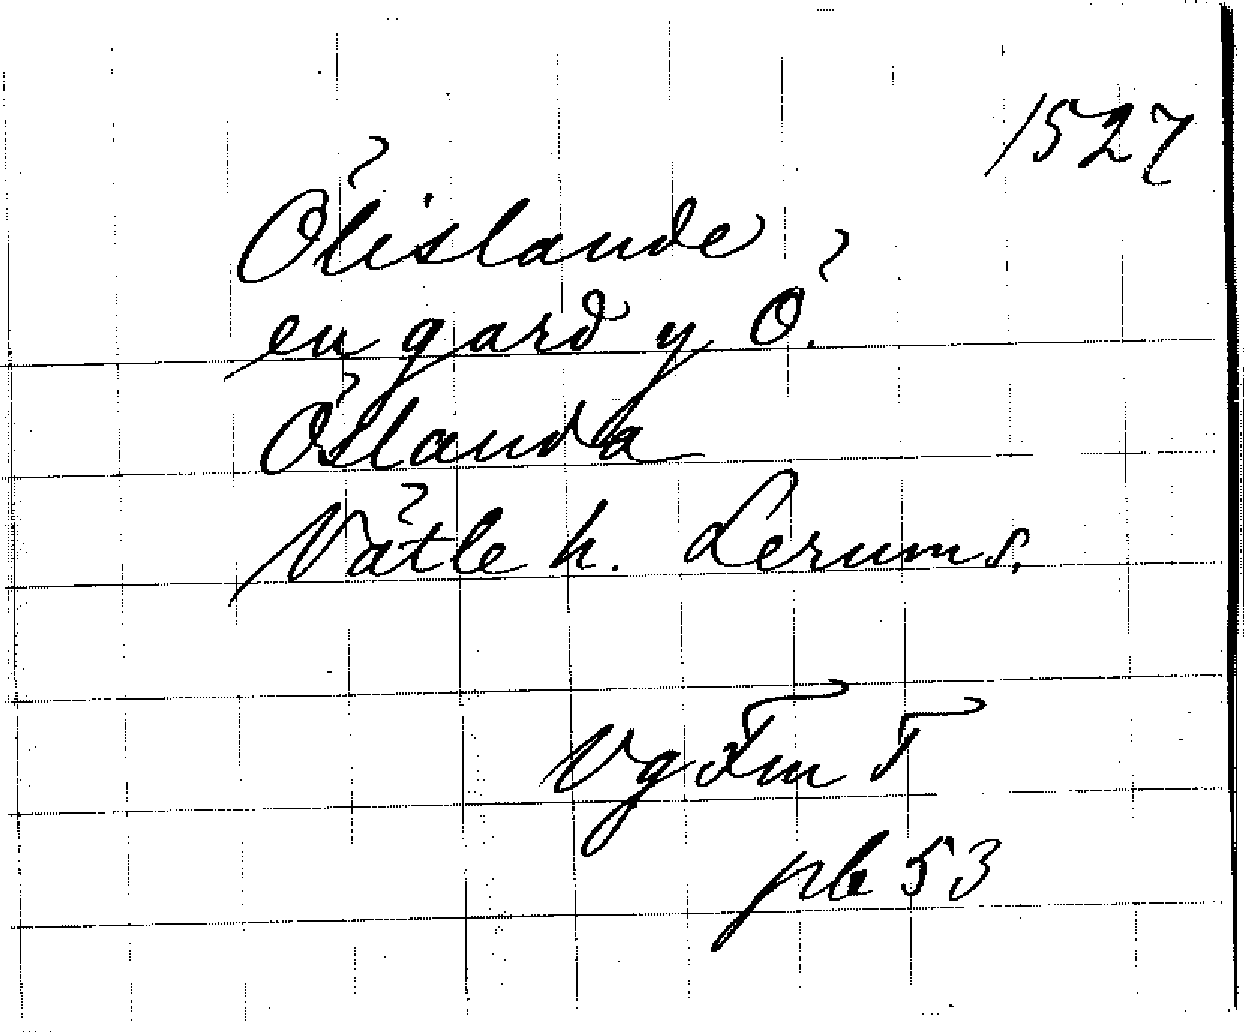 1527
Ölislande
en gard y Ö.
Öslanda
Vätle h. Lerum s.
Vg Fm T
pb 53